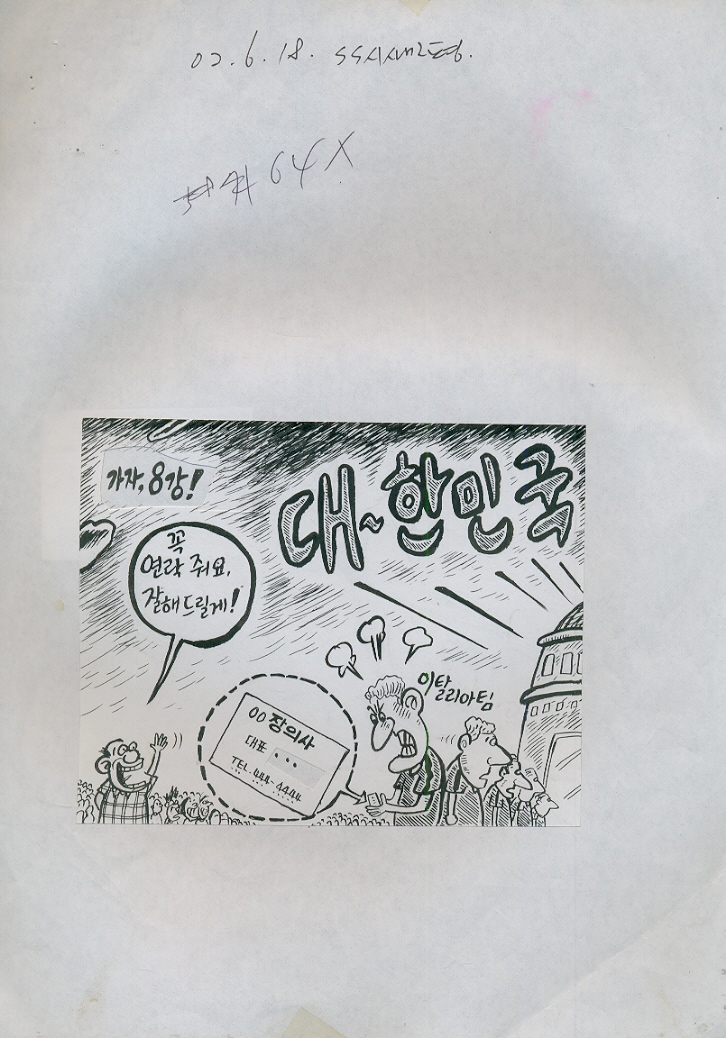 02.6.18.
64X
가자, 8강!
대~한민국
꼭
연락 줘요,
잘해드릴게!
이탈리아팀
OO 장의사
대표 • • •
TEL. 444-4444